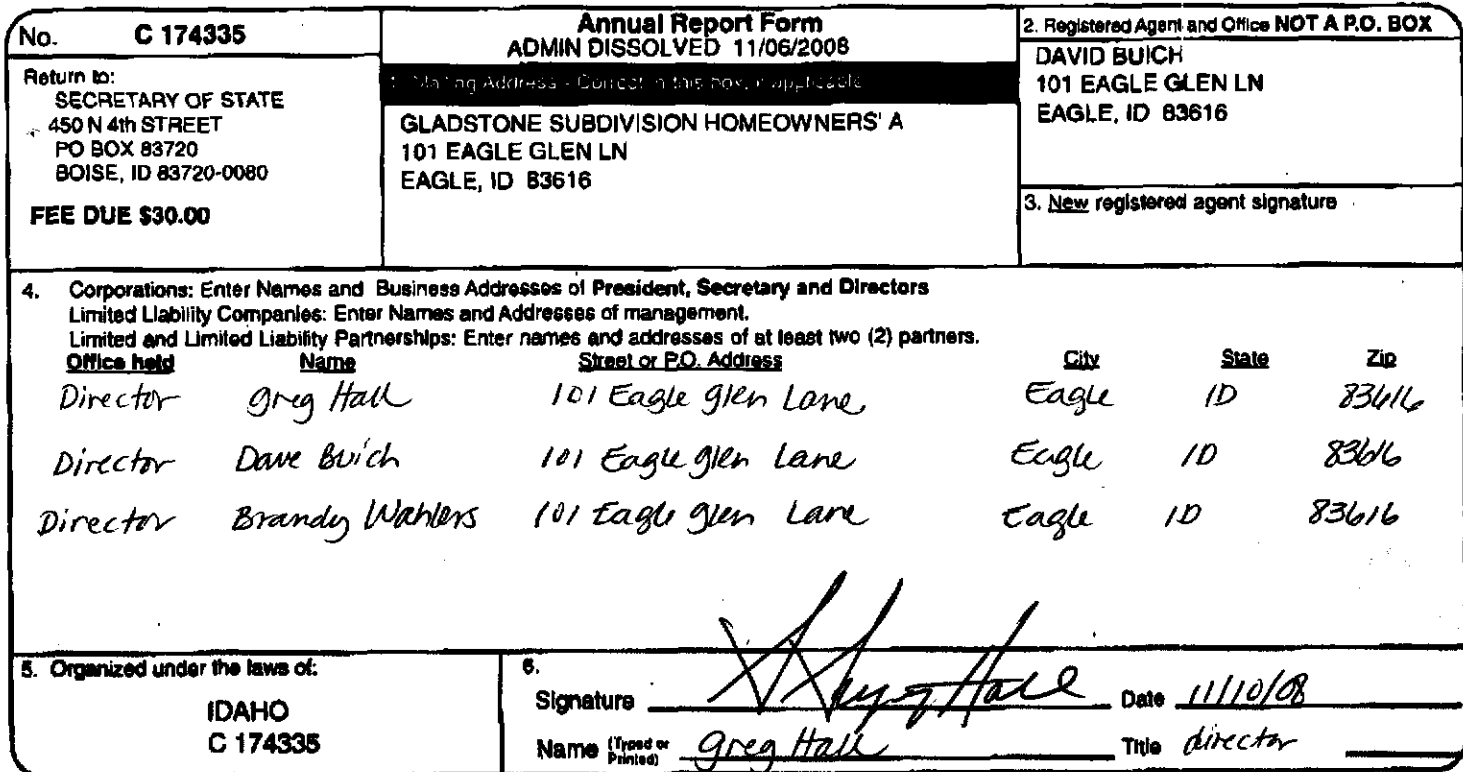 No. C 174335
Return to:
SECRETARY OF STATE
450 N 4th STREET
PO BOX 83720
BOISE, ID 83720-0080
FEE DUE $30.00
Annual Report Form
ADMIN DISSOLVED 11/06/2008
1. Mailing Address - Correct in this box, if applicable
GLADSTONE SUBDIVISION HOMEOWNERS' A
101 EAGLE GLEN LN
EAGLE, ID 83616
2. Registered Agent and Office NOT A P.O. BOX
DAVID BUICH
101 EAGLE GLEN LN
EAGLE, ID 83616
3. New registered agent signature
4. Corporations: Enter Names and Business Addresses of President, Secretary and Directors
Limited Liability Companies: Enter Names and Addresses of management.
Limited and Limited Liability Partnerships: Enter names and addresses of at least two (2) partners.
Office held Name Street or P.O. Address City State Zip
Director Greg Hall 101 Eagle Glen Lane Eagle ID 83616
Director Dave Buich 101 Eagle Glen Lane Eagle ID 83616
Director Brandy Wahlers 101 Eagle Glen Lane Eagle ID 83616
5. Organized under the laws of:
IDAHO
C 174335
6.
Signature Greg Hall Date 11/10/08
Name (Typed or Printed) Greg Hall Title director